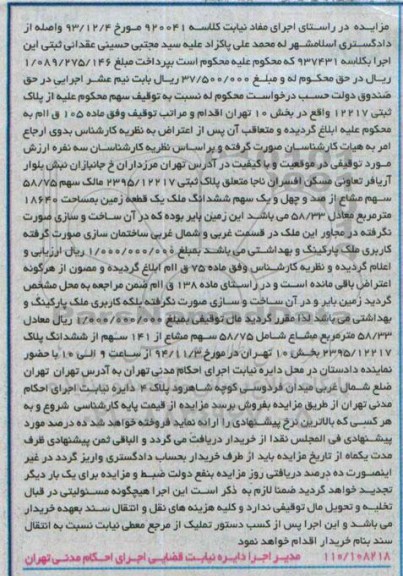 مزایـده در راستای اجرای مفاد نیابت کلاسه ۹۲۰۰۴۱ مـورخ ۹۳/۱۲/۴ واصله از
دادگستری اسلامشهر له محمد علی پاکزاد علیه سید مجتبی حسینی عقدائی ثبتی این
اجرا بکلاسه ۹۳۷۴۳۱ که محکوم علیه محکوم است بپرداخت مبلغ ۱/۰۸۹/۲۷۵/۱۴۶
ریـال در حق محکـوم له و مبلـغ ۳۷/۵۰۰/۰۰۰ ریـال بابت نیم عشـر اجرایی در حق
صندوق دولت حسب درخواسـت محکوم له نسبت به توقیف سهم محکوم علیه از پلاک
ثبتی ۱۲۲۱۷ واقع در بخش ۱۰ تهران اقدام و مراتب توقیف وفق ماده ۱۰۵ ق اام به
محکوم علیه ابلاغ گردیده و متعاقب آن پس از اعتراض به نظریه کارشناس بدوی ارجاع
امر به هیات کارشناسان صورت گرفته و براساس نظریه کارشناسان سه نفره ارزش
مورد توقیفی در موقعیت و با کیفیت در آدرس تهران مرزداران خ جانبازان نبش بلوار
آریافر تعاونی مسکن افسران ناجا متعلق پلاک ثبتی ۲۳۹۵/۱۲۲۱۷ مالک سهم ۵۸/۷۵
سهم مشاع از صد و چهل و یک سهم ششدانگ ملک یک قطعه زمین بمساحت ۱۸۶۴۰
مترمربع معادل ۵۸/۳۳ می باشد این زمین بایر بوده که در آن ساخت و سازی صورت
نگرفته در مجاور این ملک در قسمت غربی و شمال غربی ساختمان سازی صورت گرفته
کاربری ملک پارکینگ و بهداشتی می باشـد بمبلغ ۱/۰۰۰/۰۰۰/۰۰۰ ریال ارزیابی و
اعلام گردیده و نظریه کارشناس وفق ماده ۷۵ ق اام ابلاغ گردیده و مصون از هرگونه
اعتراض باقی مانده است و در راستای ماده ۱۳۸ ق اام ضمن مراجعه به محل مشخص
گردید زمین بایر و در آن ساخت و سازی صورت نگرفته بلکه کاربری ملک پارکینگ و
بهداشتی می باشد لذا مقرر گردید مال توقیفی بمبلغ ۱/۰۰۰/۰۰۰/۰۰۰ ریال معادل
۵۸/۳۳ مترمربع مشاع شامل ۵۸/۷۵ سهم مشاع از ۱۴۱ سهم از ششدانگ پلاک
۲۳۹۵/۱۲۲۱۷ بخش ۱۰ تهـران در مورخ ۹۴/۱۱/۳ از ساعت ۹ الی ۱۰ با حضور
نماینده دادستان در محل دایره نیابت اجرای احکام مدنی تهران به آدرس تهران تهران
ضلع شمال غربی میدان فردوسی کوچه شاهرود پلاک ۴ دایره نیابت اجرای احکام
مدنی تهران از طریق مزایده بفروش برسد مزایده از قیمت پایه کارشناسی شروع و به
هر کسی که بالاترین نرخ پیشنهادی را ارائه نماید فروخته خواهد شد ده درصد مورد
پیشنهادی فی المجلس نقدا از خریدار دریافت می گردد و الباقی ثمن پیشنهادی ظرف
مدت یکماه از تاریخ مزایده باید از طرف خریدار بحساب دادگستری واریز گردد در غیر
اینصورت ده درصد دریافتی روز مزایده بنفع دولت ضبط و مزایده برای یک بار دیگر
تجدید خواهد گردید ضمنا لازم به ذکر است این اجرا هیچگونه مسئولیتی در قبال
تخلیه و تحویل مال توقیفی ندارد و کلیه هزینه های نقل و انتقال سند بعهده خریدار
می باشد و این اجرا پس از کسب دستور تملیک از مرجع معطی نیابت نسبت به انتقال
سند بنام خریدار اقدام خواهد نمود
۱۱۰/۱۰۸۲۱۸ مدیر اجرا دایره نیابت قضایی اجرای احکام مدنی تهران